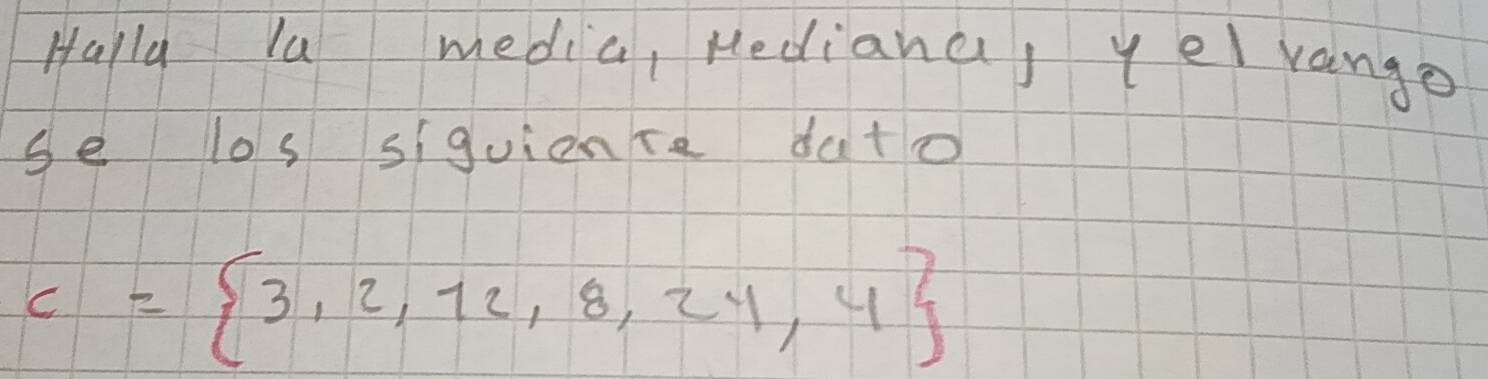 Halla la media, Mediana, y el rango
se los siguiente dato
c = {3, 2, 12, 8, 24, 4}